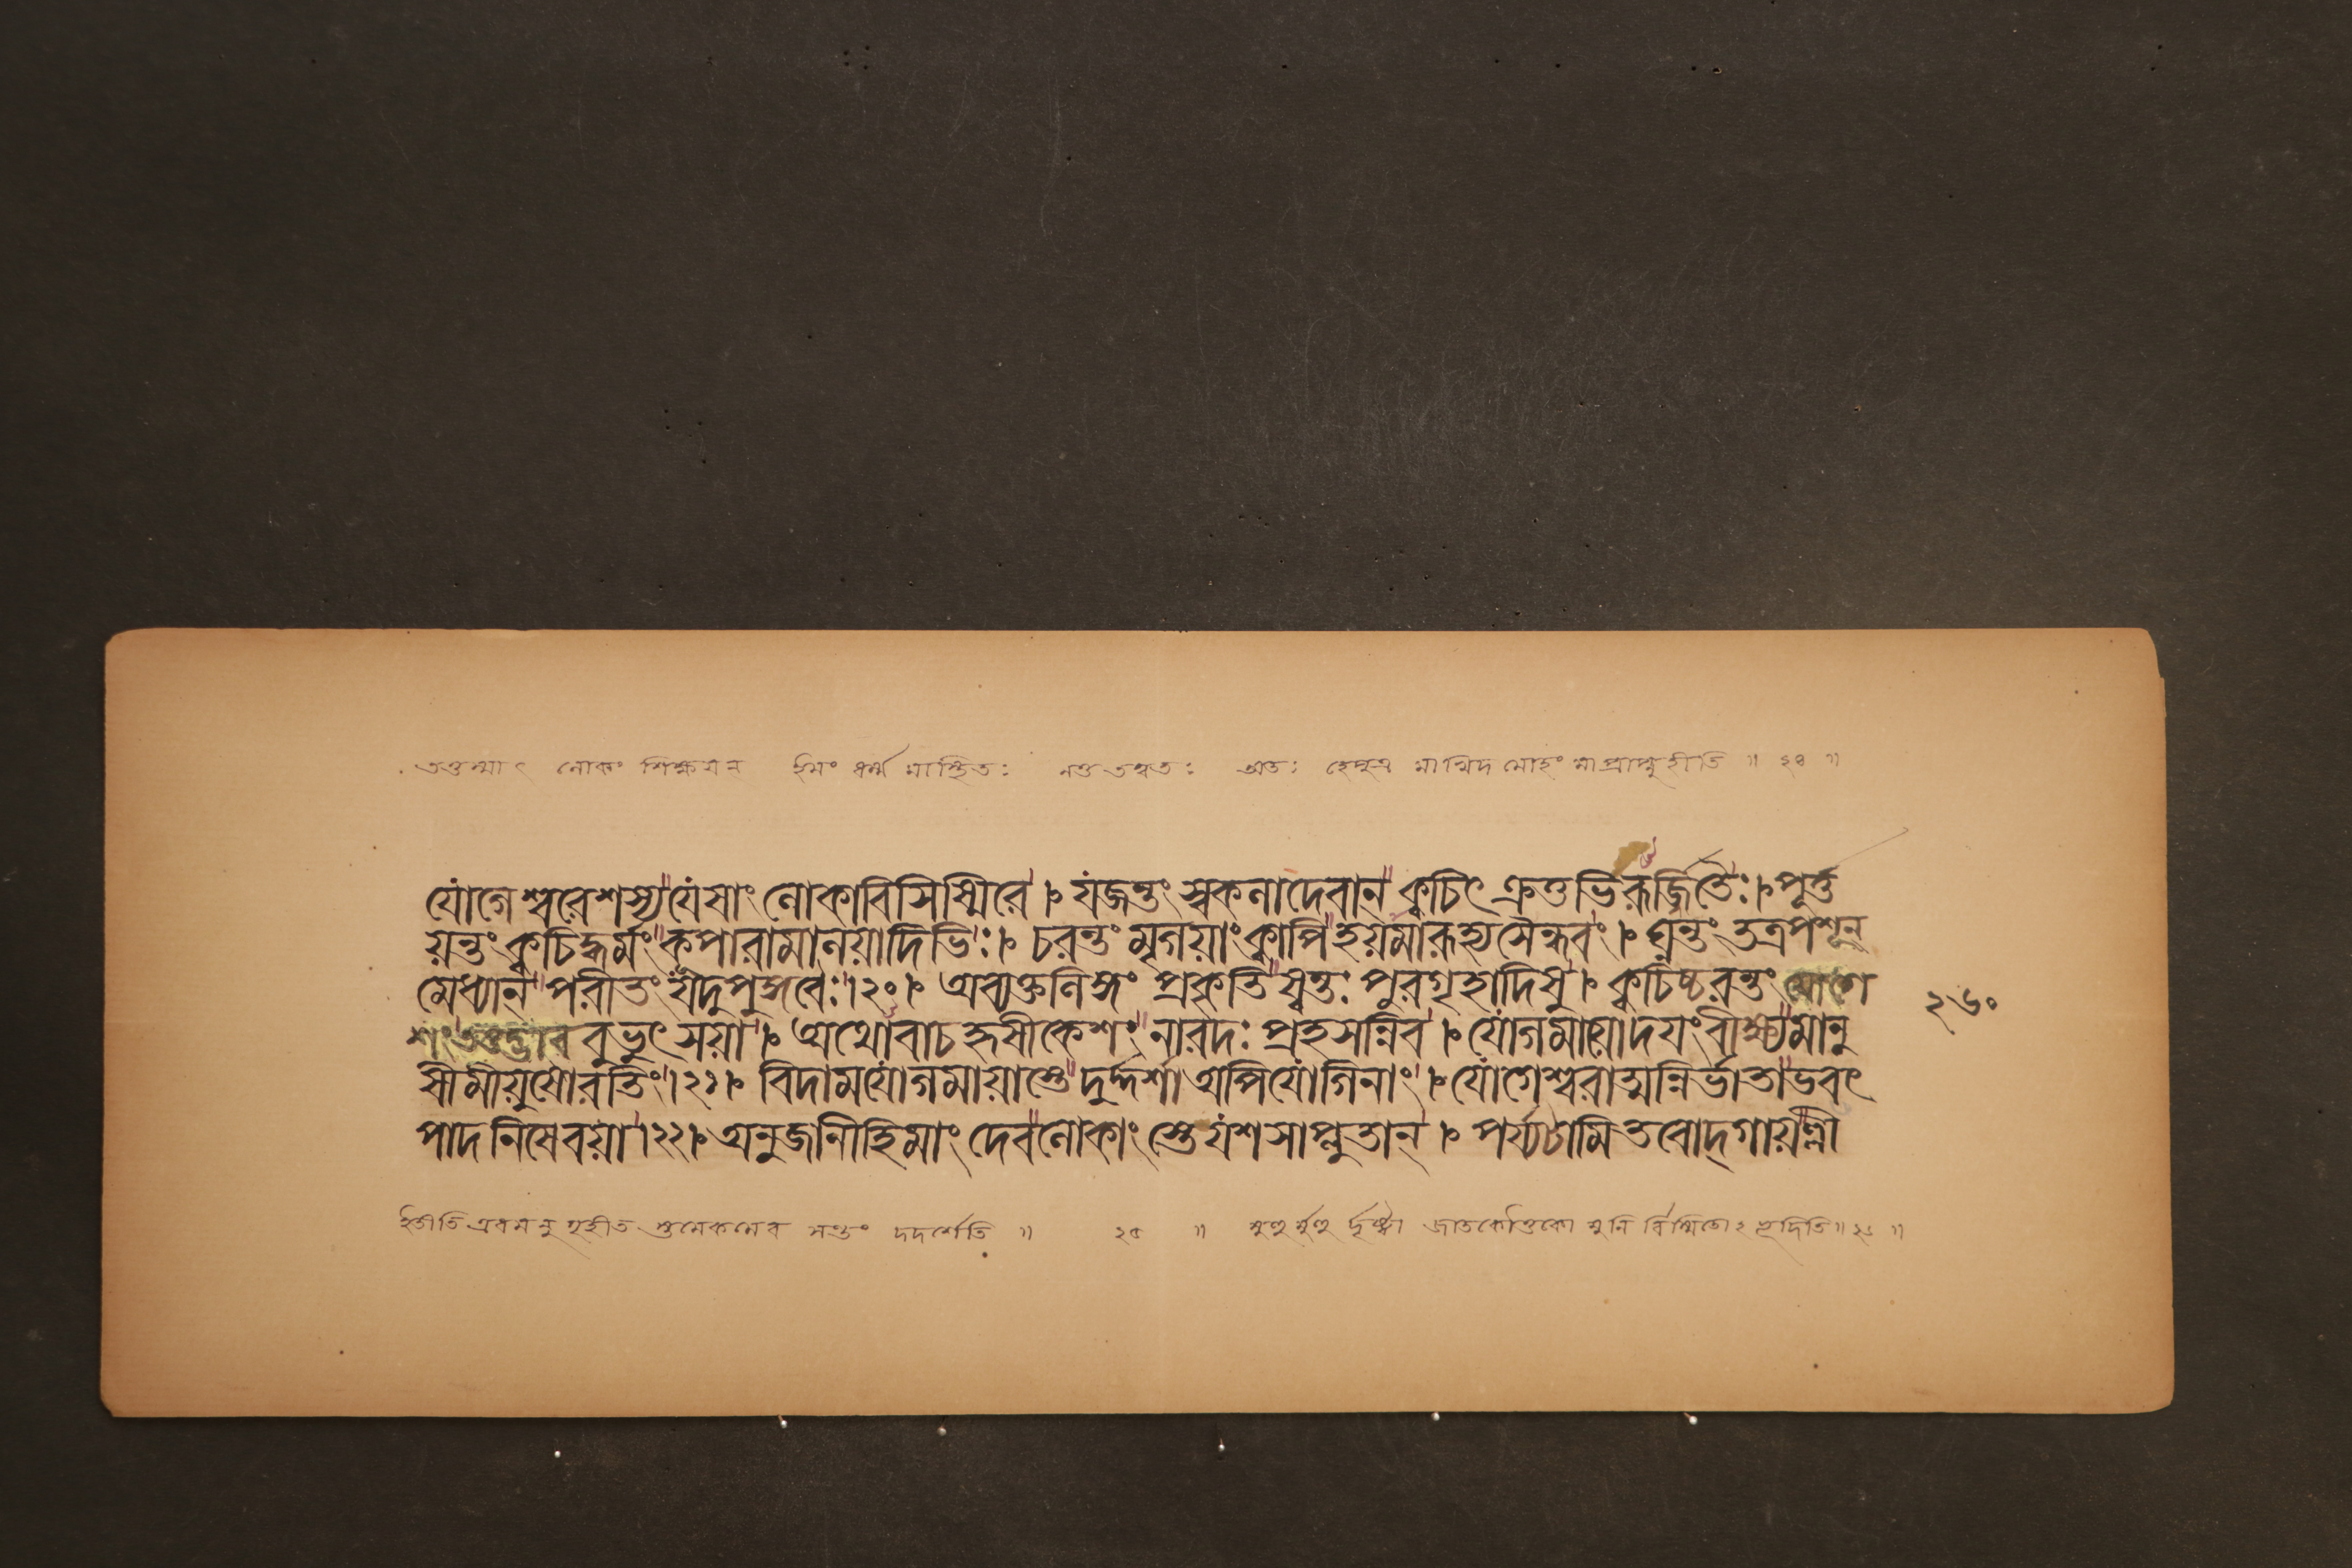 তত্তস্মাৎ লোকং শিক্ষয়ন ইমং ধর্ম্ম মাস্থিতঃ নতু তত্ত্বতঃ অতঃ হেপুত্র মাখিদ মোহং মাপ্রাপ্নুহীতি ॥
যোগেশ্বরেশস্য যেসাং লোকাবিসিস্মিরে । যজন্তং স্বকলাদেবান্ ক্বচিৎ ক্রতুভিরূর্জ্জিতৈঃ । পূর্ত্ত
য়ন্তং ক্বচিদ্ধর্মং কূপারামালয়াদিভিঃ । চরন্তং মৃগয়াং ক্বাপি হয়মারূহ্য সৈন্ধবং । ঘ্নন্তং তত্রপশূন্
মেধ্যান্ পরীতং যদুপুঙ্গবৈঃ ।২০। অব্যক্তলিঙ্গং প্রকৃতিস্বন্তঃ পুরগৃহাদিসু । ক্বচিচ্চরন্তং যোগে
শং তত্তদ্ভাব বুভুৎসয়া । অথোবাচ হৃষীকেশং নারদঃ প্রহসন্নিব । যোগমায়োদয়ং বীক্ষ্য মানু
সীমীয়ুসোরতিং ।২১। বিদামযোগমায়াস্তে দুর্দ্দর্শা অপিযোগিনাং । যোগেশ্বরাত্মন্নির্ভাতাভবৎ
পাদনিষেবয়া ।২২। অনুজানীহিমাং দেবলোকাং স্তেযশসাপ্লুতান্ । পর্য্যটামি তবোদ্গায়ল্লী
২৬০
মুহু র্মুহু র্দৃষ্ট্বা জাতকৌতুকো মুনি র্বিস্মিতোঽভূদিতি॥